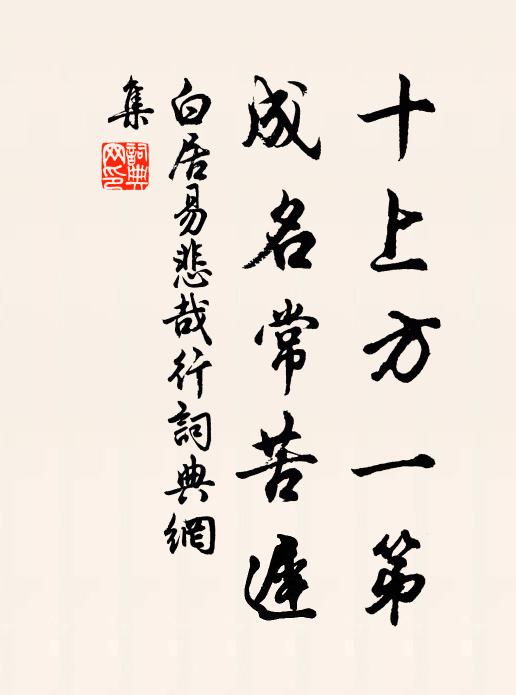 十上方一第
成名常苦遲
白居易悲哉行詞典網
集
詞典網印